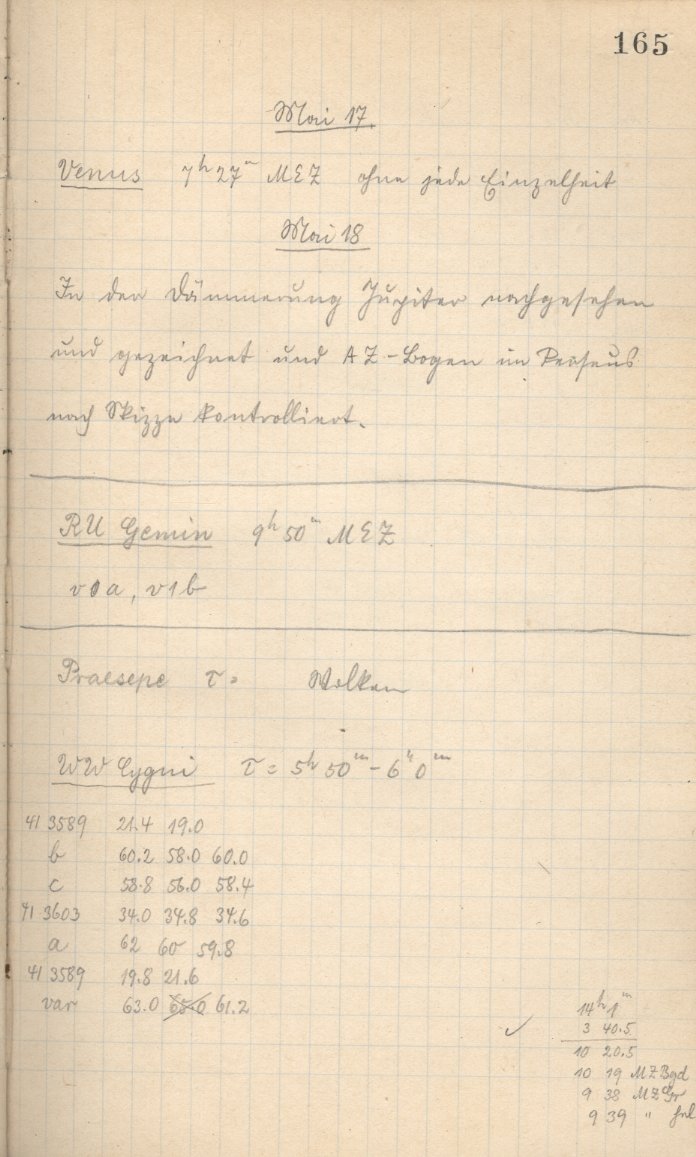 165
Mai 17.
Venus 7h 27m MEZ ohne jede Einzelheit
Mai 18
In der Dämmerung Jupiter nachgesehen
und gezeichnet und AZ-Bogen im Perseus
nach Skizze kontrolliert.
RU Gemin 9h 50m MEZ
v0a, v1b
Praesepe τ= Wolken
WW Cygni τ = 5h 50m - 6h 0m
41 3589 21.4 19.0
b 60.2 58.0 60.0
c 58.8 56.0 58.4
41 3603 34.0 34.8 34.6
a 62 60 59.8
41 3589 19.8 21.6
var 63.0 65.0 61.2
14h 1m
3 40.5
10 20.5
10 19 MZ Bgd
9 38 MZ Gr
9 39 "